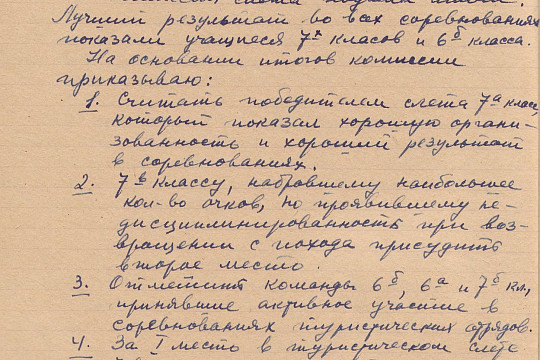 слета
Лучший результат во всех соревнованиях
показали учащиеся 7х класов и 6б класса.
На основании итогов комиссии
приказываю:
1. Считать победителем слета 7а класс,
который показал хорошую органи-
зованность и хороший результат
в соревнованиях.
2. 7в классу, набравшему наибольшее
кол-во очков, но проявившему не-
дисциплинированность при воз-
вращении с похода присудить
второе место.
3. Отметить команды 6б, 6а и 7б кл.,
принявшие активное участие в
соревнованиях туристических отрядов.
4. За I место в туристическом слете